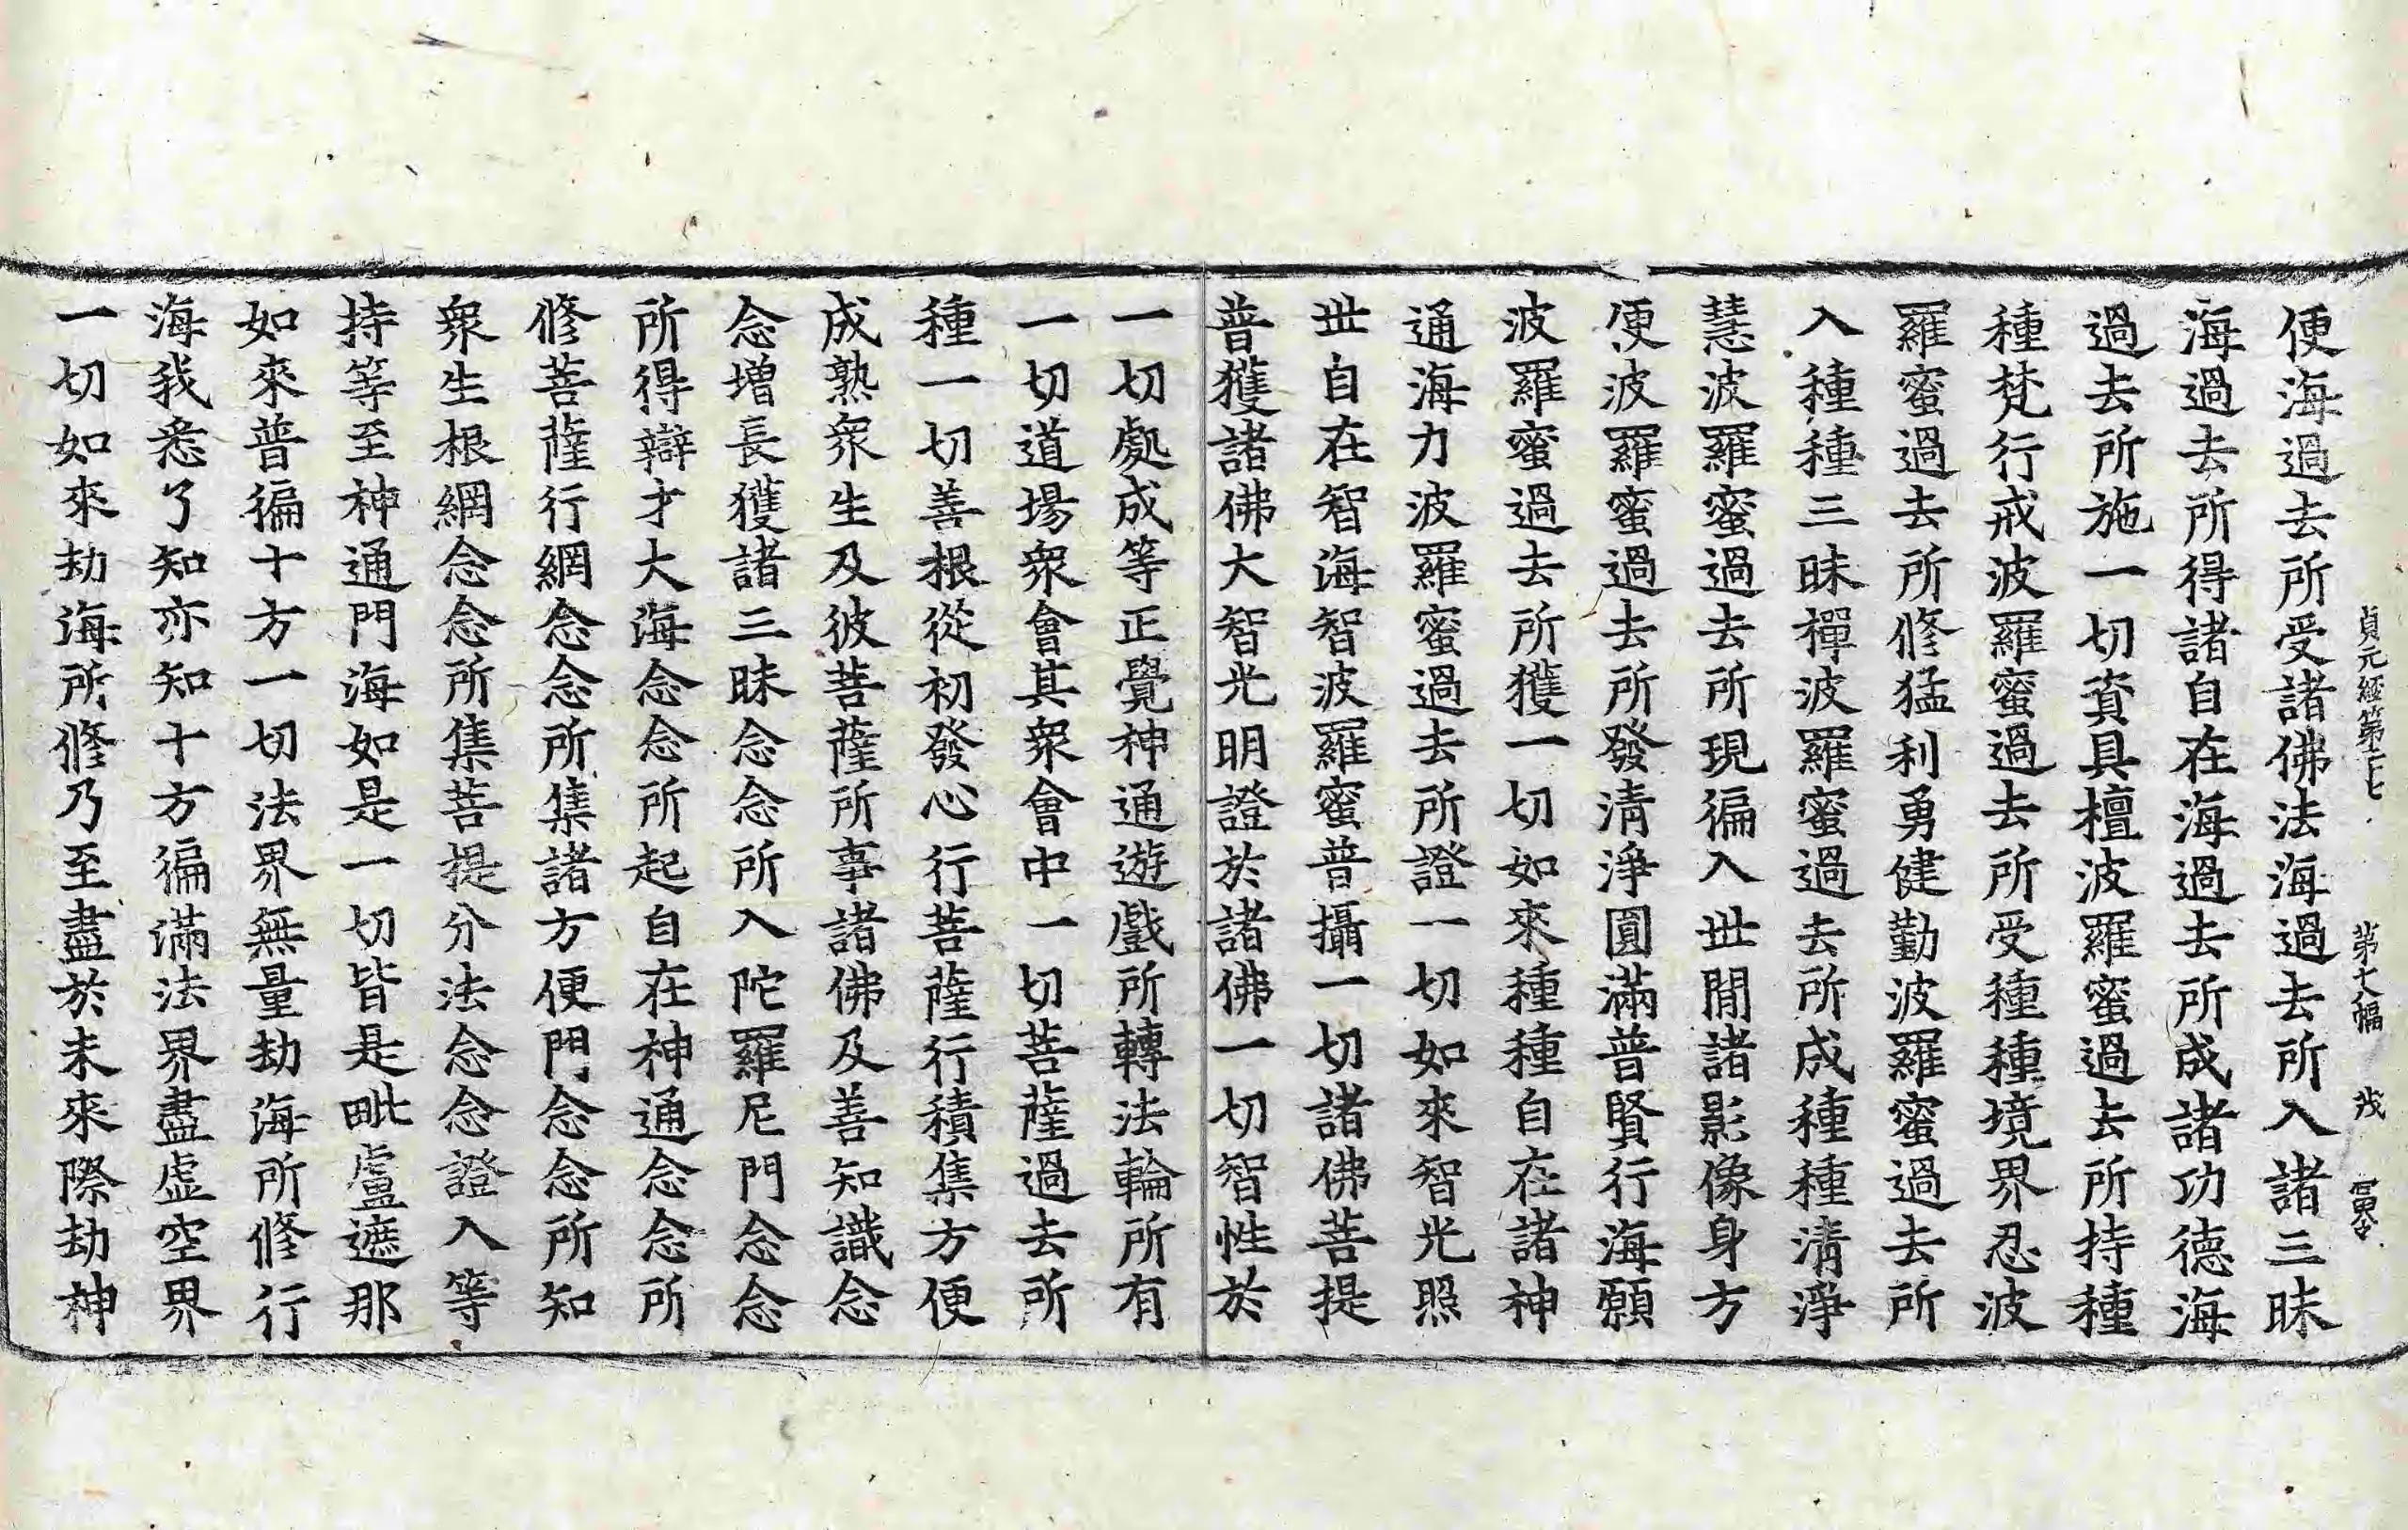 貞元經第二十七 第七幅 戎
便海過去所受諸佛法海過去所入諸三昧
海過去所得諸自在海過去所成諸功德海
過去所施一切資具檀波羅蜜過去所持種
種梵行戒波羅蜜過去所受種種境界忍波
羅蜜過去所修猛利勇健勤波羅蜜過去所
入種種三昧禪波羅蜜過去所成種種清淨
慧波羅蜜過去所現徧入世間諸影像身方
便波羅蜜過去所發清淨圓滿普賢行海願
波羅蜜過去所獲一切如來種種自在諸神
通海力波羅蜜過去所證一切如來智光照
世自在智海智波羅蜜普攝一切諸佛菩提
普獲諸佛大智光明證於諸佛一切智性於
一切處成等正覺神通遊戲所轉法輪所有
一切道場衆會其衆會中一切菩薩過去所
種一切善根從初發心行菩薩行積集方便
成熟衆生及彼菩薩所事諸佛及善知識念
念增長獲諸三昧念念所入陀羅尼門念念
所得辯才大海念念所起自在神通念念所
修菩薩行網念念所集諸方便門念念所知
衆生根網念念所集菩提分法念念證入等
持等至神通門海如是一切皆是毗盧遮那
如來普徧十方一切法界無量劫海所修行
海我悉了知亦知十方徧滿法界盡虛空界
一切如來劫海所修乃至盡於未來際劫神